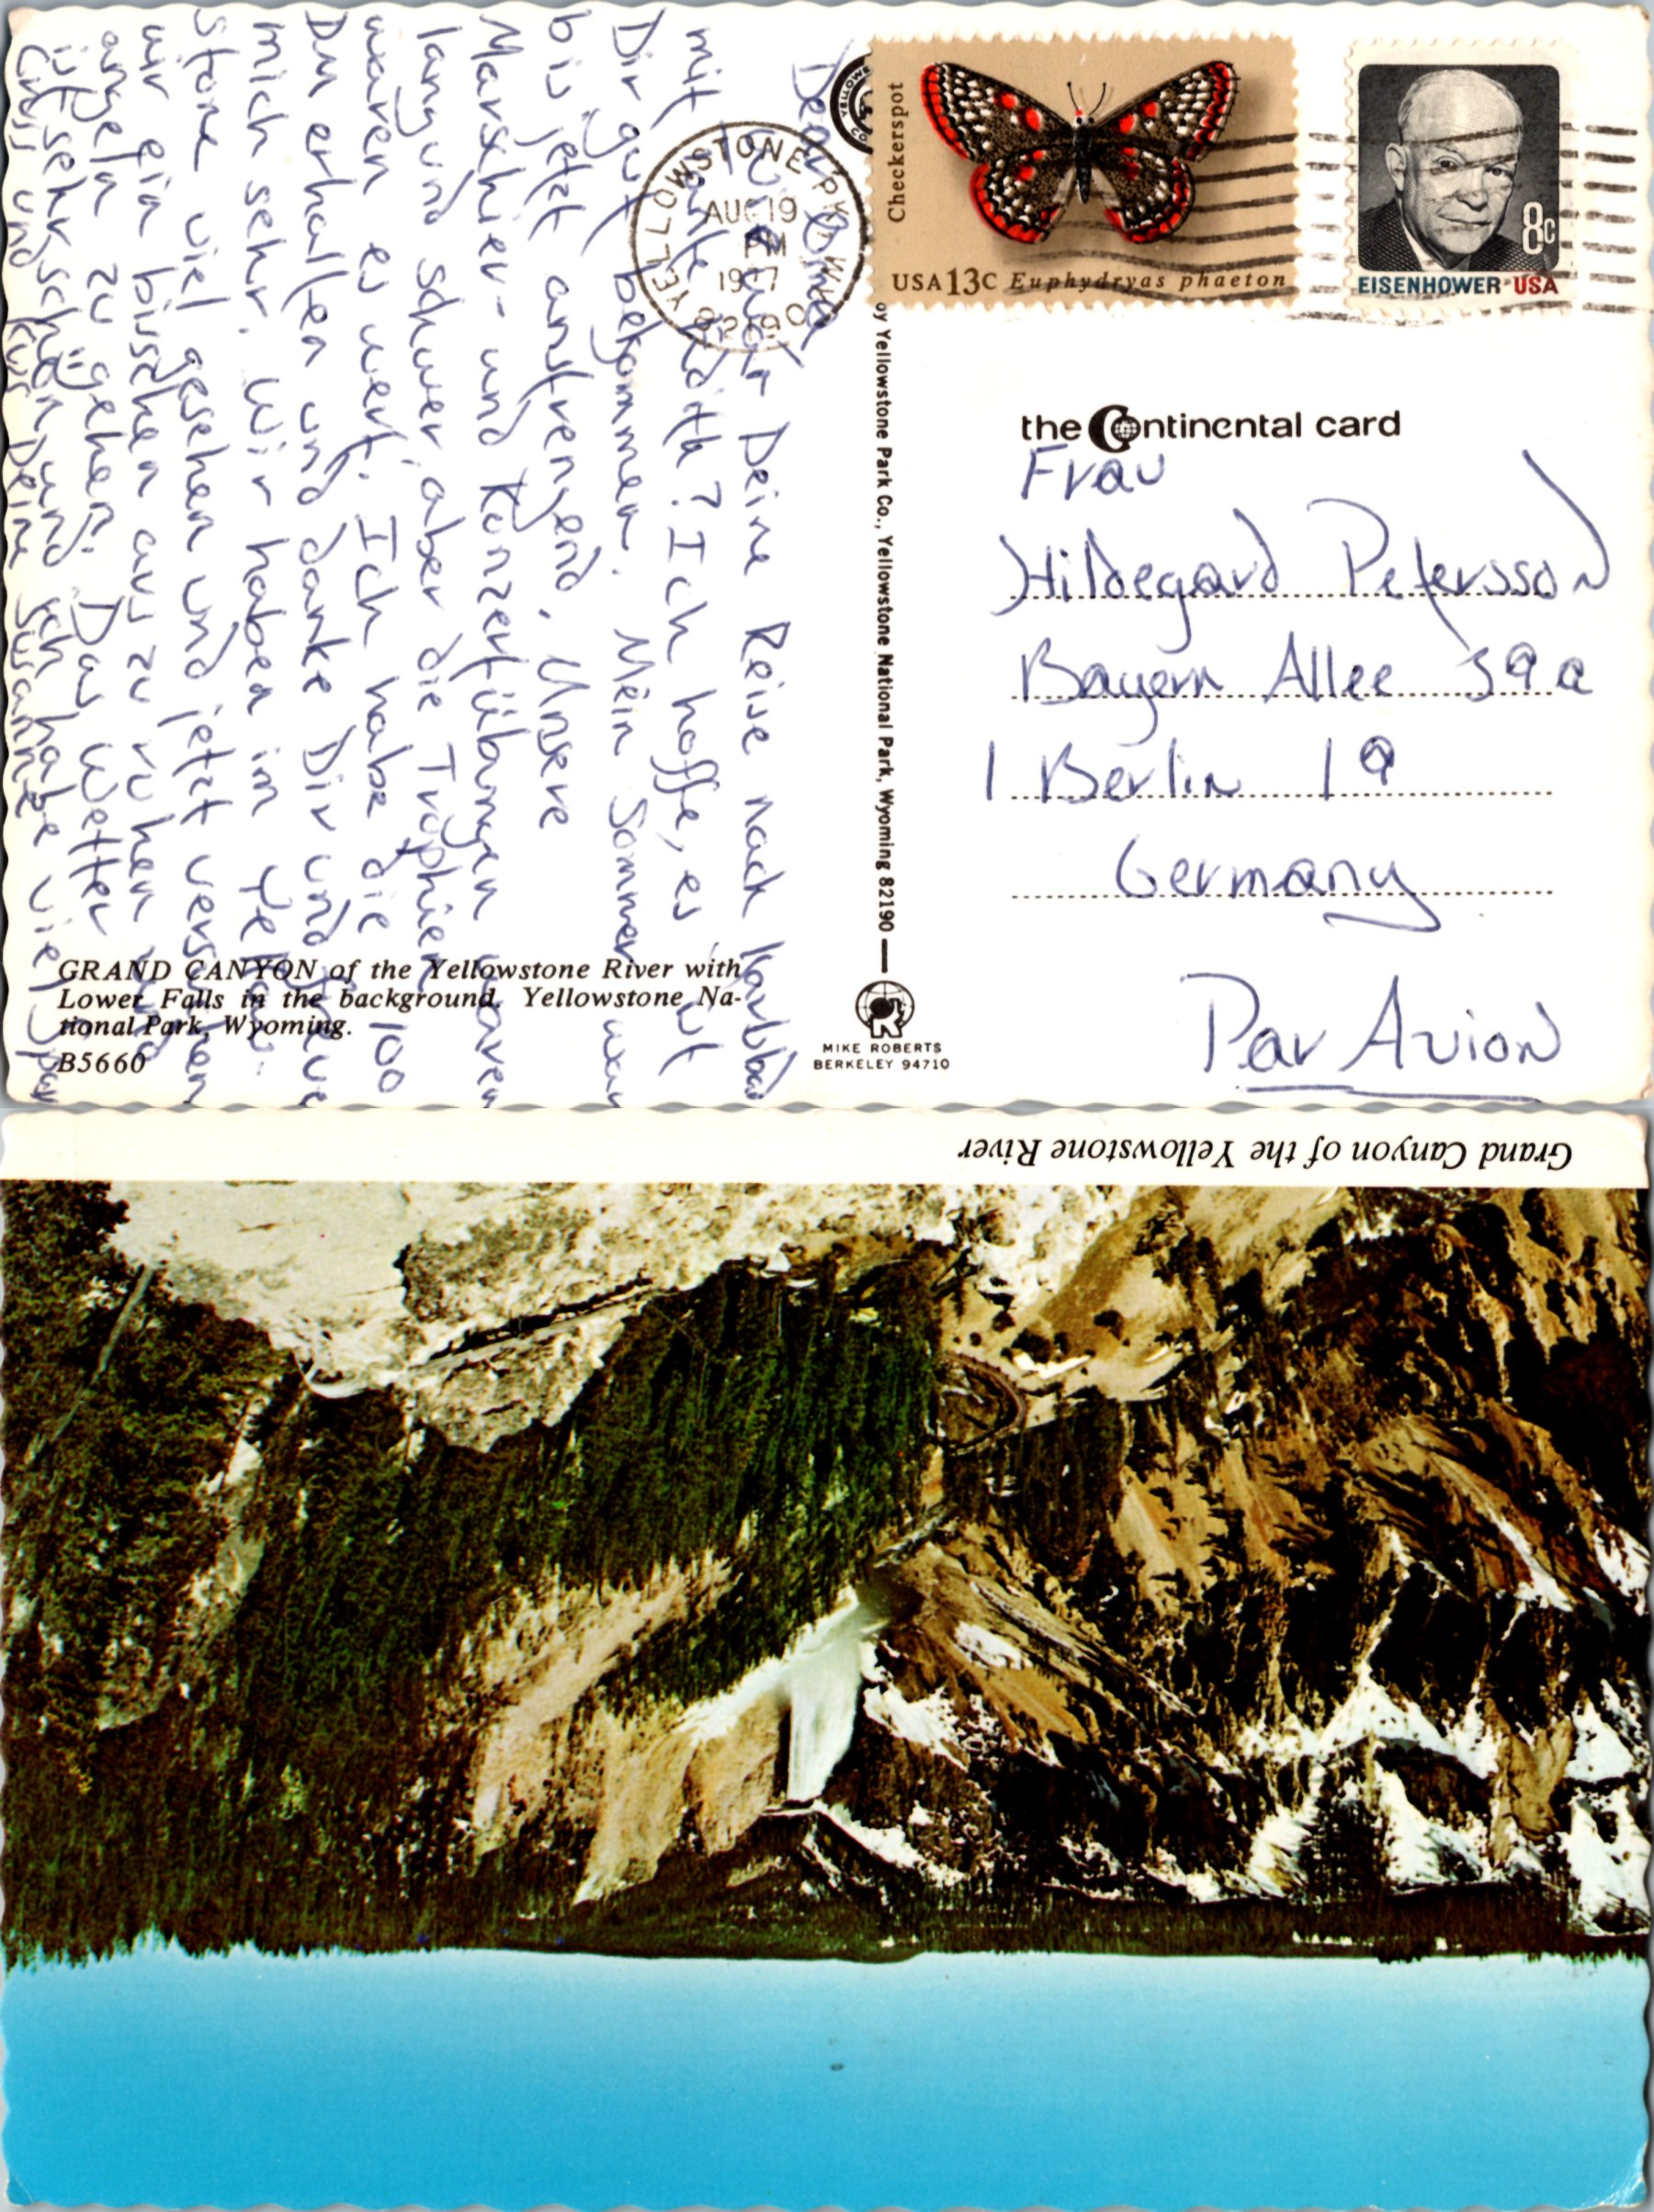 Dear Oma
Wie war Deine Reise nach Karlsbad
mit Tante Edith? Ich hoffe, es ist
Dir gut bekommen. Mein Sommer war
bis jetzt anstrengend. Unsere
Marschier- und Konzertübungen waren
lang und schwer, aber die Trophäen
waren es wert. Ich habe die 100
DM erhalten und danke Dir und freue
mich sehr. Wir haben im Yellow-
stone viel gesehen und jetzt versuchen
wir ein bisschen aus zu ruhen und
angeln zu gehen. Das Wetter
ist sehr schön und ich habe viel Spaß
Gruss und Kuss Deine Susanne
GRAND CANYON of the Yellowstone River with
Lower Falls in the background. Yellowstone Na-
tional Park, Wyoming.
B5660
YELLOWSTONE
AUG 19
PM
82190
Checkerspot
USA 13C Euphydryas phaeton
8c
EISENHOWER·USA
by Yellowstone Park Co., Yellowstone National Park, Wyoming 82190
MIKE ROBERTS
BERKELEY 94710
the Continental card
Frau
Hildegard Petersson
Bayern Allee 39a
1 Berlin 19
Germany
Par Avion
Grand Canyon of the Yellowstone River